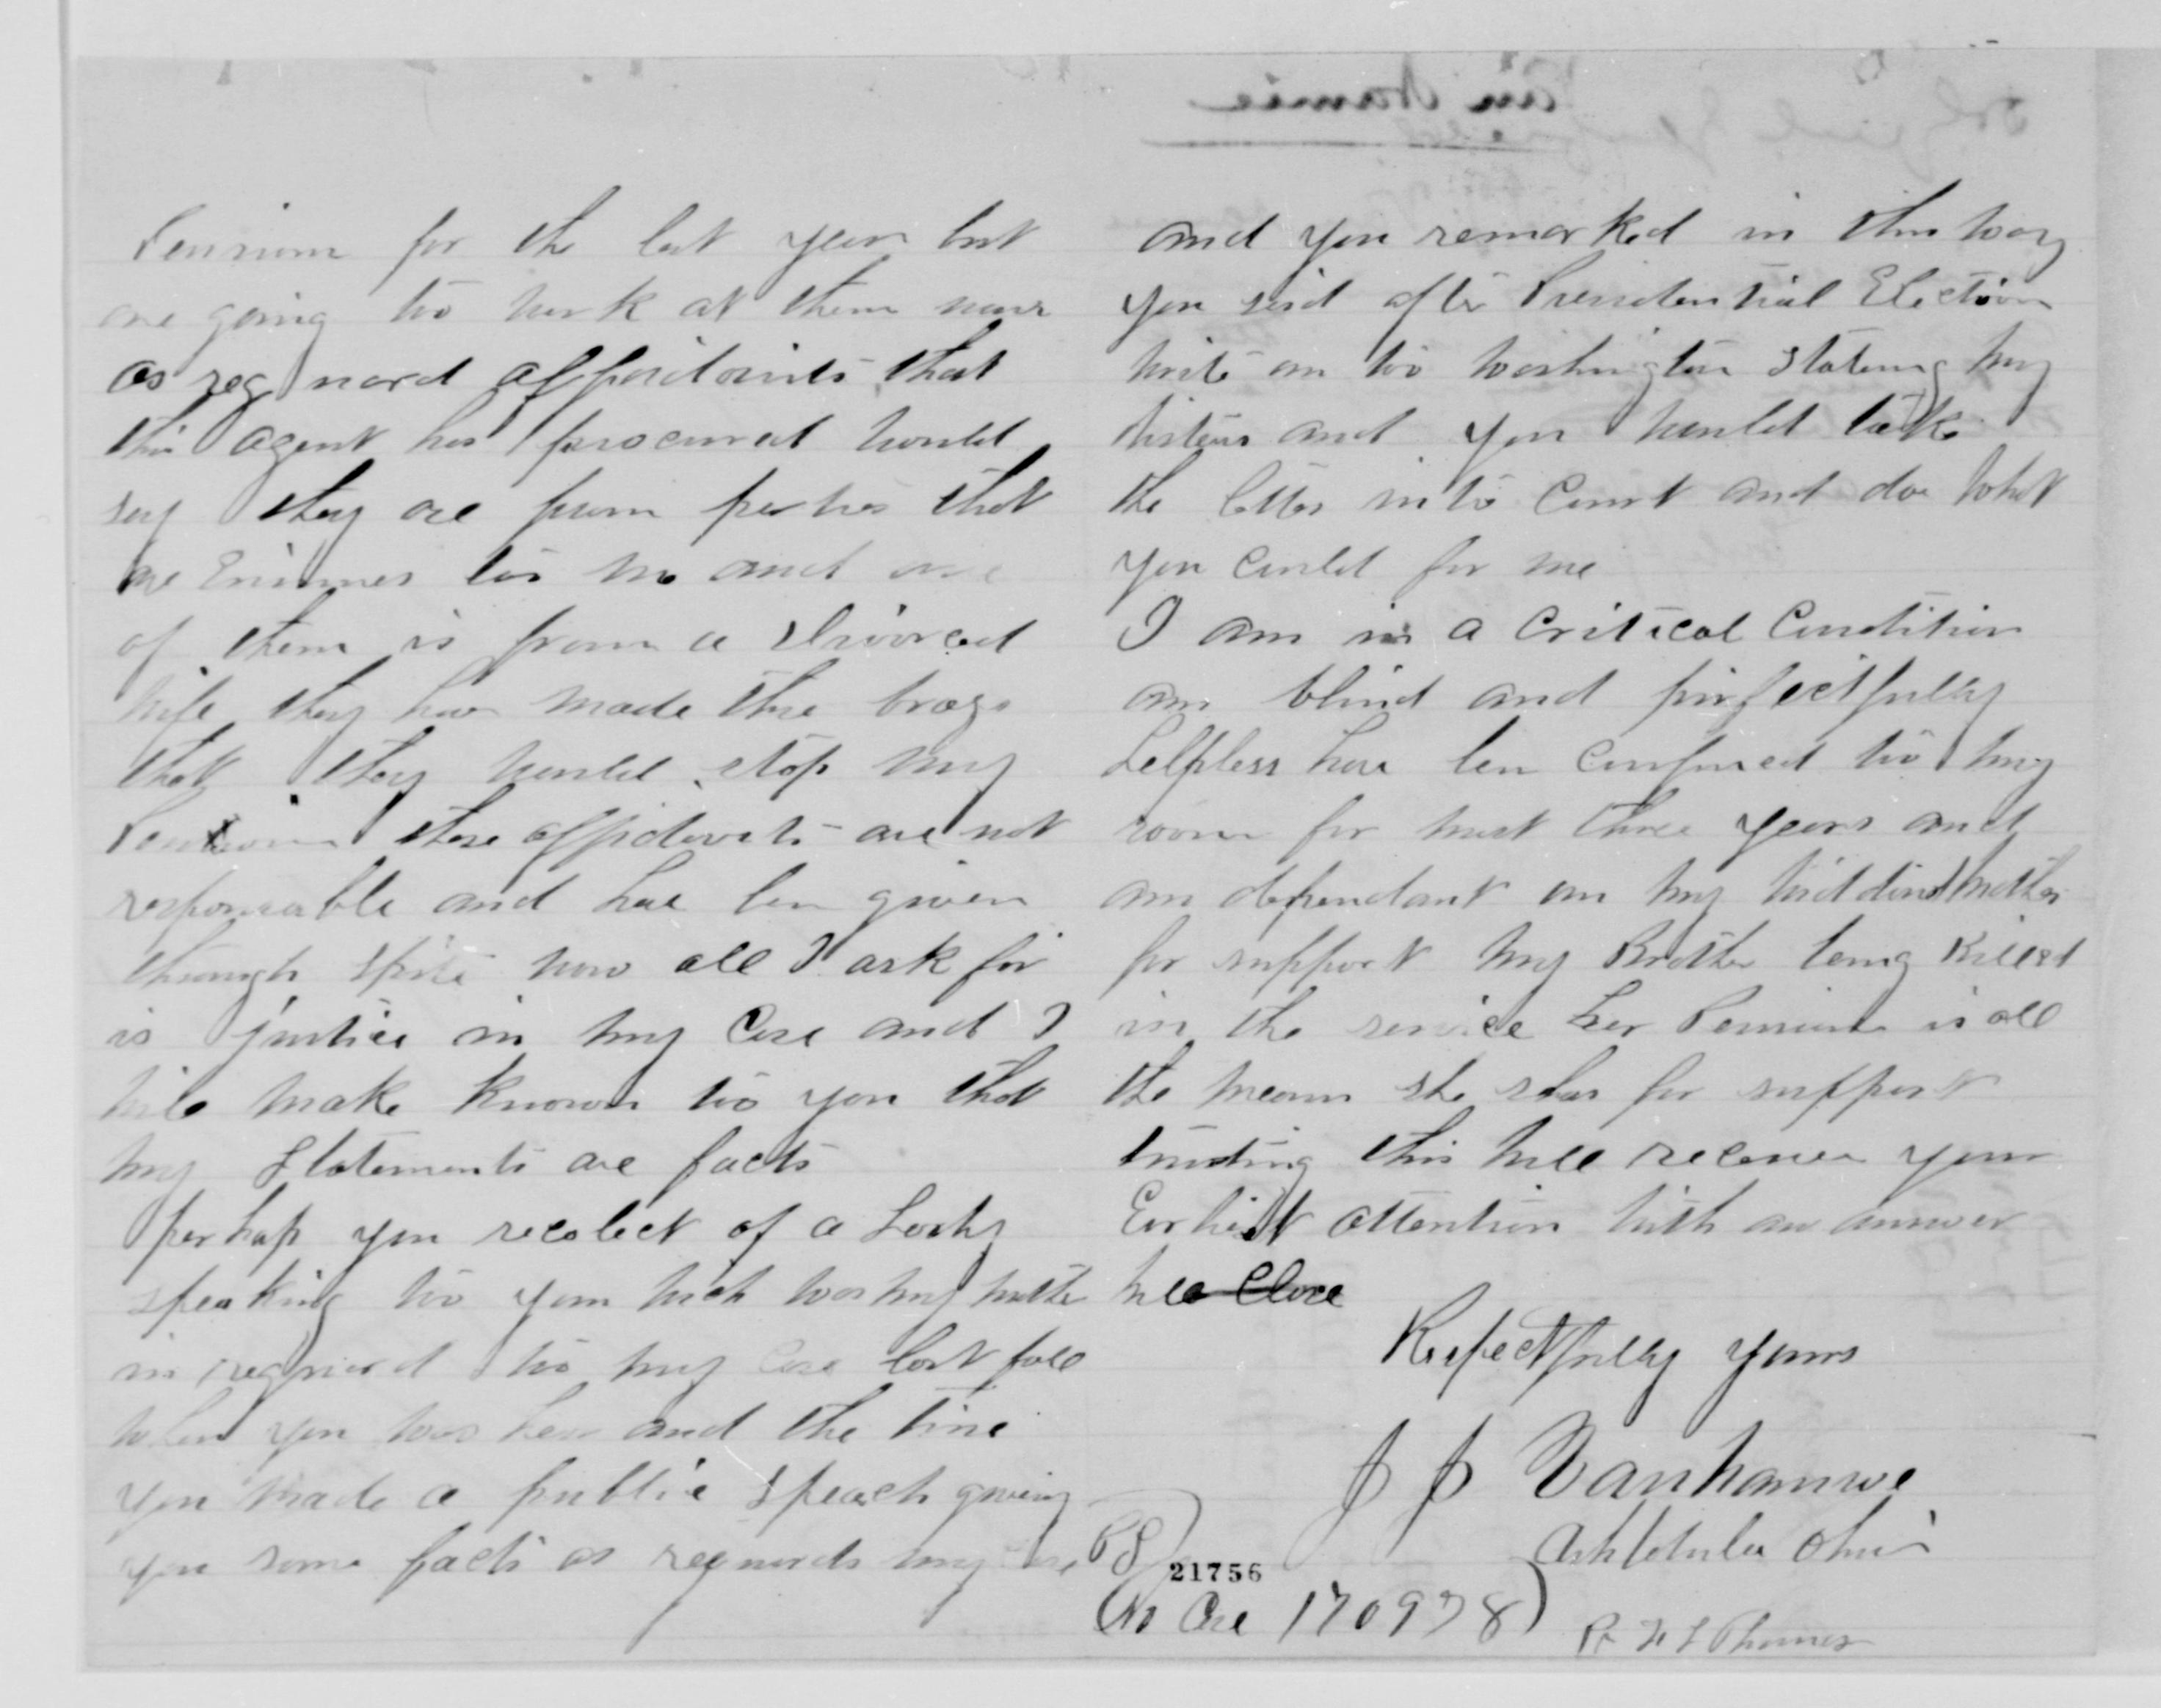 Pension for the last year but
are going too work at them now
as reg nard affidavits that
this agent has procured would
say they are from parties that
are Enimes too me and one
of them is from a divorced
wife they have made thre brags
that they would stop my
Pension these affidavits are not
responsable and hae ben given
through spite now all I ask for
is justice in my Case and I
will make known too you that
my statements are facts
perhap you recolect of a Lady
speaking too you wich was my mother
in regard too my case last fall
when you was here and the time
you made a public speach giving
you some facts as regards my case
and you remarked in this way
you said after Presidential Election
write on too washington stateing my
and you would take
the letter into Court and doe what
you could for me
I am in a Critical Condition
am blind and pirfectfully
helpless have ben confined too my
room for most three years and
am dependant on my widdind mother
for support my Brother being killed
in the service her Pension is all
the means she has for support
trusting this will receive your
Earliest attention with an answer
will close
Respectfully yours
J J Vanhamwe
Ashtabula Ohio
PS
21756
(No Case 170978)